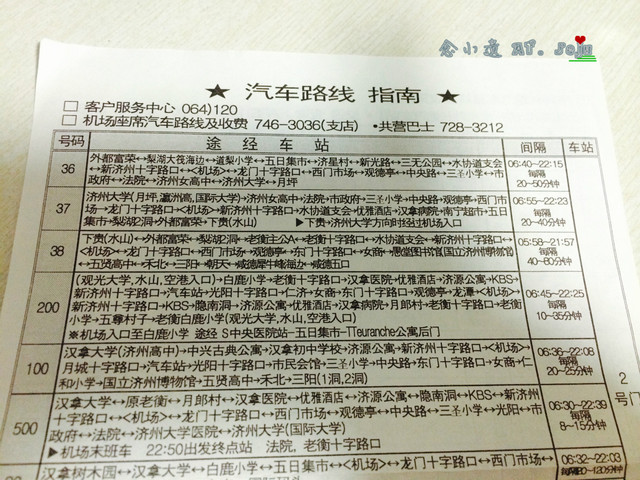 念小逗 AT. Jeju
★ 汽车路线 指南 ★
□ 客户服务中心 064)120
□ 机场座席汽车路线及收费 746-3036(支店) ·共营巴士 728-3212
号码 途经车站 间隔 车站
36 外都富荣↔梨湖大筏海边↔道梨小学↔五日集市↔济星村↔新光路↔三无公园↔水协道支会 06:40~22:15
↔新济州十字路口↔<机场>↔龙门十字路口↔西门市场↔观德亭↔中央路↔三圣小学↔市 每隔
政府↔法院↔济州女高中↔济州大学↔月坪 20~50分钟
37 济州大学(月坪,瀛洲高,国际大学)↔济州女高中↔法院↔市政府↔三圣小学↔中央路↔观德亭↔西门市 06:55~22:23
场↔龙门十字路口↔<机场>↔新济州十字路口↔水协道支会↔优雅酒店↔汉拿病院↔南宁超市↔五日 每隔
集市↔梨湖2洞↔外都富荣↔下贵(水山) ▶下贵→济州大学方向时经过机场入口 20~40分钟
38 下贵(水山)↔外都富荣↔梨湖2洞↔老衡主公A↔老衡十字路口↔水协道支会↔新济州十字路口↔ 05:58~21:57
<机场>↔龙门十字路口↔西门市场↔观德亭↔东门十字路口↔女商↔ 每隔
↔五贤高中↔禾北↔三阳↔朝天↔咸德犀牛峰海边↔咸德五口 40~80分钟
200 (观光大学,水山,空港入口)→白鹿小学→老衡十字路口→汉拿医院→优雅酒店→济源公寓→KBS→ 06:45~22:25
新济州十字路口→汽车站→光阳十字路口→仁济→女商→东门十字路口→观德亭→龙潭→<机场>→新 每隔
济州十字路口→KBS→隐南洞→济源公寓→优雅酒店→汉拿病院→月郎村→老衡十字路口→老衡 10~35分钟
小学→五尊村子→老衡白鹿小学(观光大学,水山,空港入口)
※机场入口至白鹿小学 途经 S中央医院站→五日集市→Tteuranche公寓后门
100 汉拿大学(济州高中)→中兴古典公寓→汉拿初中学校→济源公寓→新济州十字路口→<机场>→ 06:36~22:08
月城十字路口→汽车站→光阳十字路口→市民会馆→三圣小学→中央路→东门十字路口→女商→仁 每隔
和小学→国立济州博物馆→五贤高中→禾北→三阳(1洞,2洞) 20~25分钟
2
号门
500 汉拿大学↔原老衡↔月郎村↔汉拿医院↔优雅酒店↔济源公寓↔隐南洞↔KBS↔新济州 06:30~22:39
十字路口↔<机场>↔龙门十字路口↔西门市场↔观德亭↔中央路↔三圣小学↔光阳↔市 每隔
政府↔法院↔济州大学医院↔济州大学(国际大学) 8~15分钟
▶机场末班车 22:50出发终点站 法院, 老衡十字路口
汉拿树木园↔汉拿大学↔白鹿小学↔五日集市↔<机场>↔龙门十字路口↔西门市场↔ 06:32~22:03